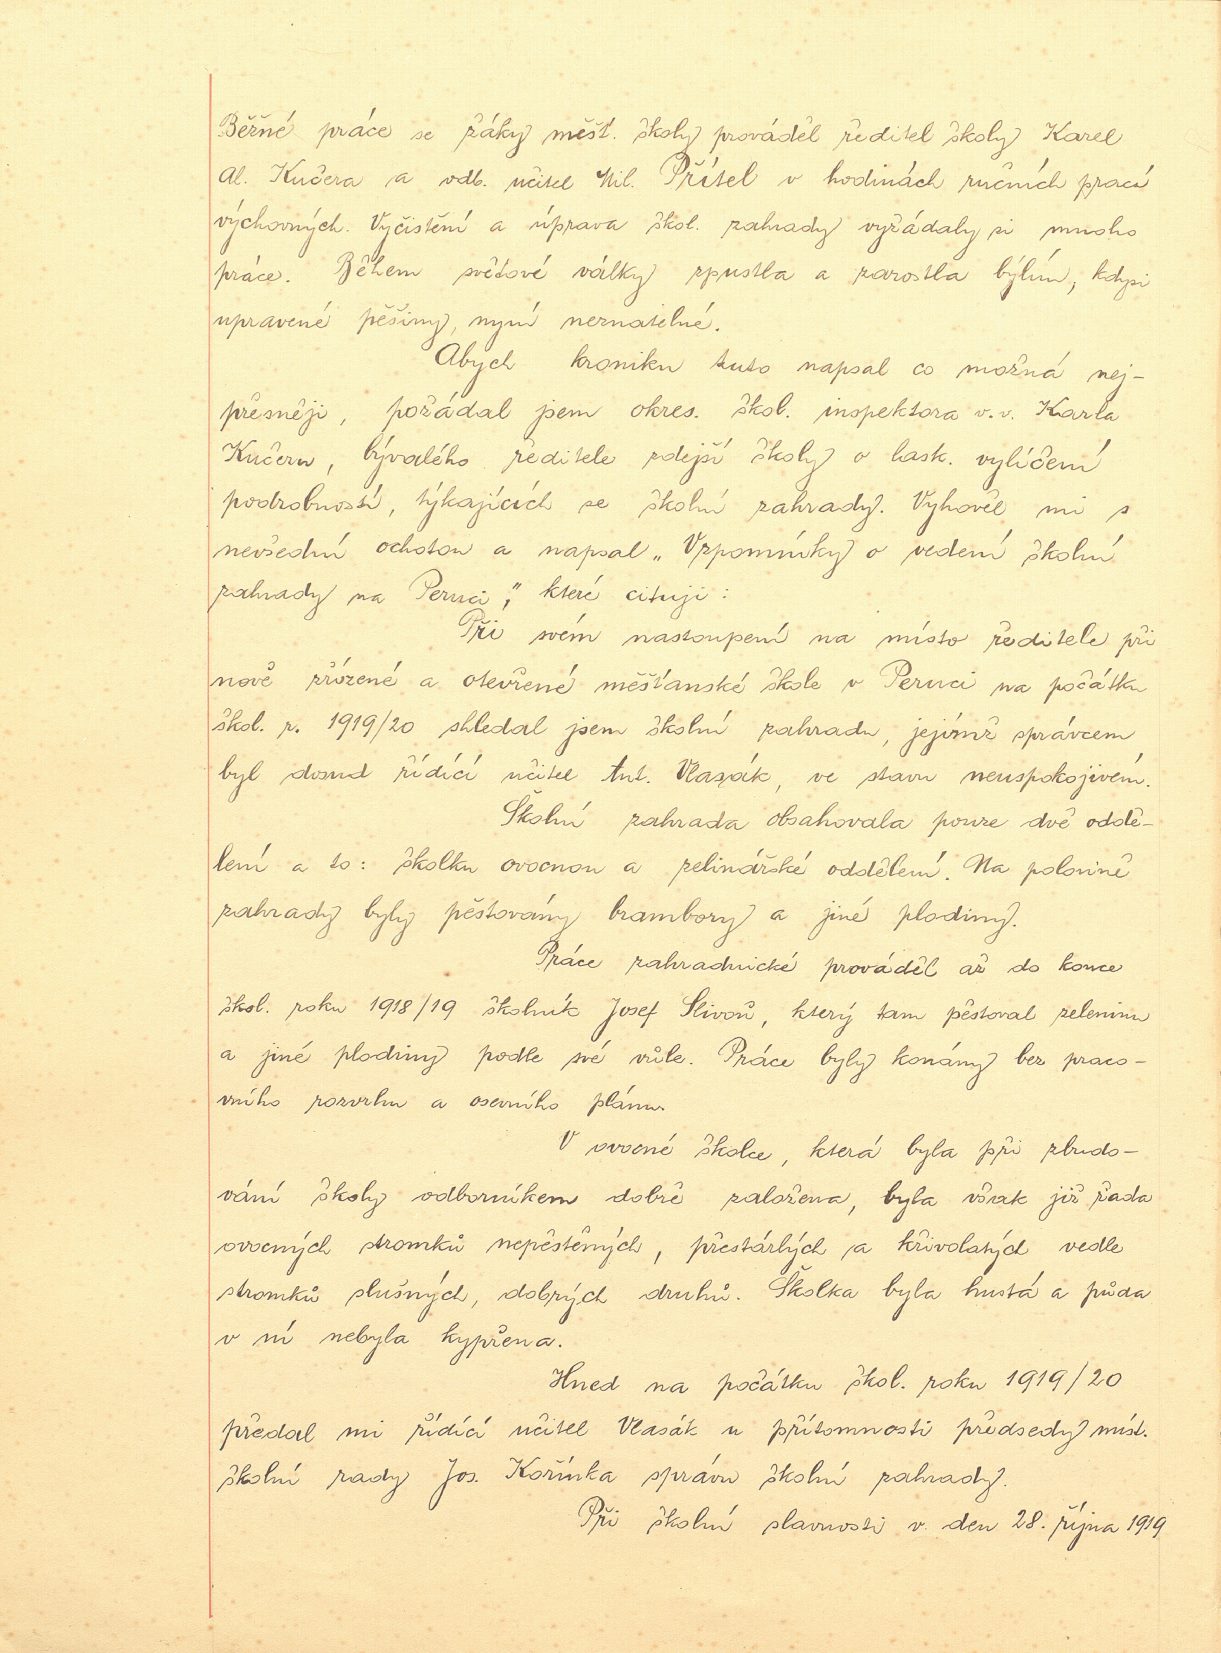 Běžné práce se žáky měšť. školy prováděl ředitel školy Karel
Al. Kučera a odb. učitel Mil. Přítel v hodinách ručních prací
výchovných. Vyčistění a úprava škol. zahrady vyžádaly si mnoho
práce. Během světové války zpustla a zarostla býlím, kdysi
upravené pěšiny, nyní neznatelné.
Abych kroniku tuto napsal co možná nej-
přesněji, požádal jsem okres. škol. inspektora v. v. Karla
Kučeru, bývalého ředitele zdejší školy o lask. vylíčení
podrobností, týkajících se školní zahrady. Vyhověl mi s
nevšední ochotou a napsal „Vzpomínky o vedení školní
zahrady na Peruci", které cituji:
Při svém nastoupení na místo ředitele při
nově zřízené a otevřené měšťanské škole v Peruci na počátku
škol. r. 1919/20 shledal jsem školní zahradu, jejímž správcem
byl dosud řídící učitel Ant. Vlasák, ve stavu neuspokojivém.
Školní zahrada obsahovala pouze dvě oddě-
lení a to: školku ovocnou a zelinářské oddělení. Na polovině
zahrady byly pěstovány brambory a jiné plodiny.
Práce zahradnické prováděl až do konce
škol. roku 1918/19 školník Josef Slivoň, který tam pěstoval zeleninu
a jiné plodiny podle své vůle. Práce byly konány bez praco-
vního rozvrhu a osevního plánu.
V ovocné školce, která byla při zbudo-
vání školy odborníkem dobře založena, byla však již řada
ovocných stromků nepěstěných, přestárlých a křivolatých vedle
stromků slušných, dobrých druhů. Školka byla hustá a půda
v ní nebyla kypřena.
Hned na počátku škol. roku 1919/20
předal mi řídící učitel Vlasák u přítomnosti předsedy míst.
školní rady Jos. Kořínka správu školní zahrady.
Při školní slavnosti v den 28. října 1919